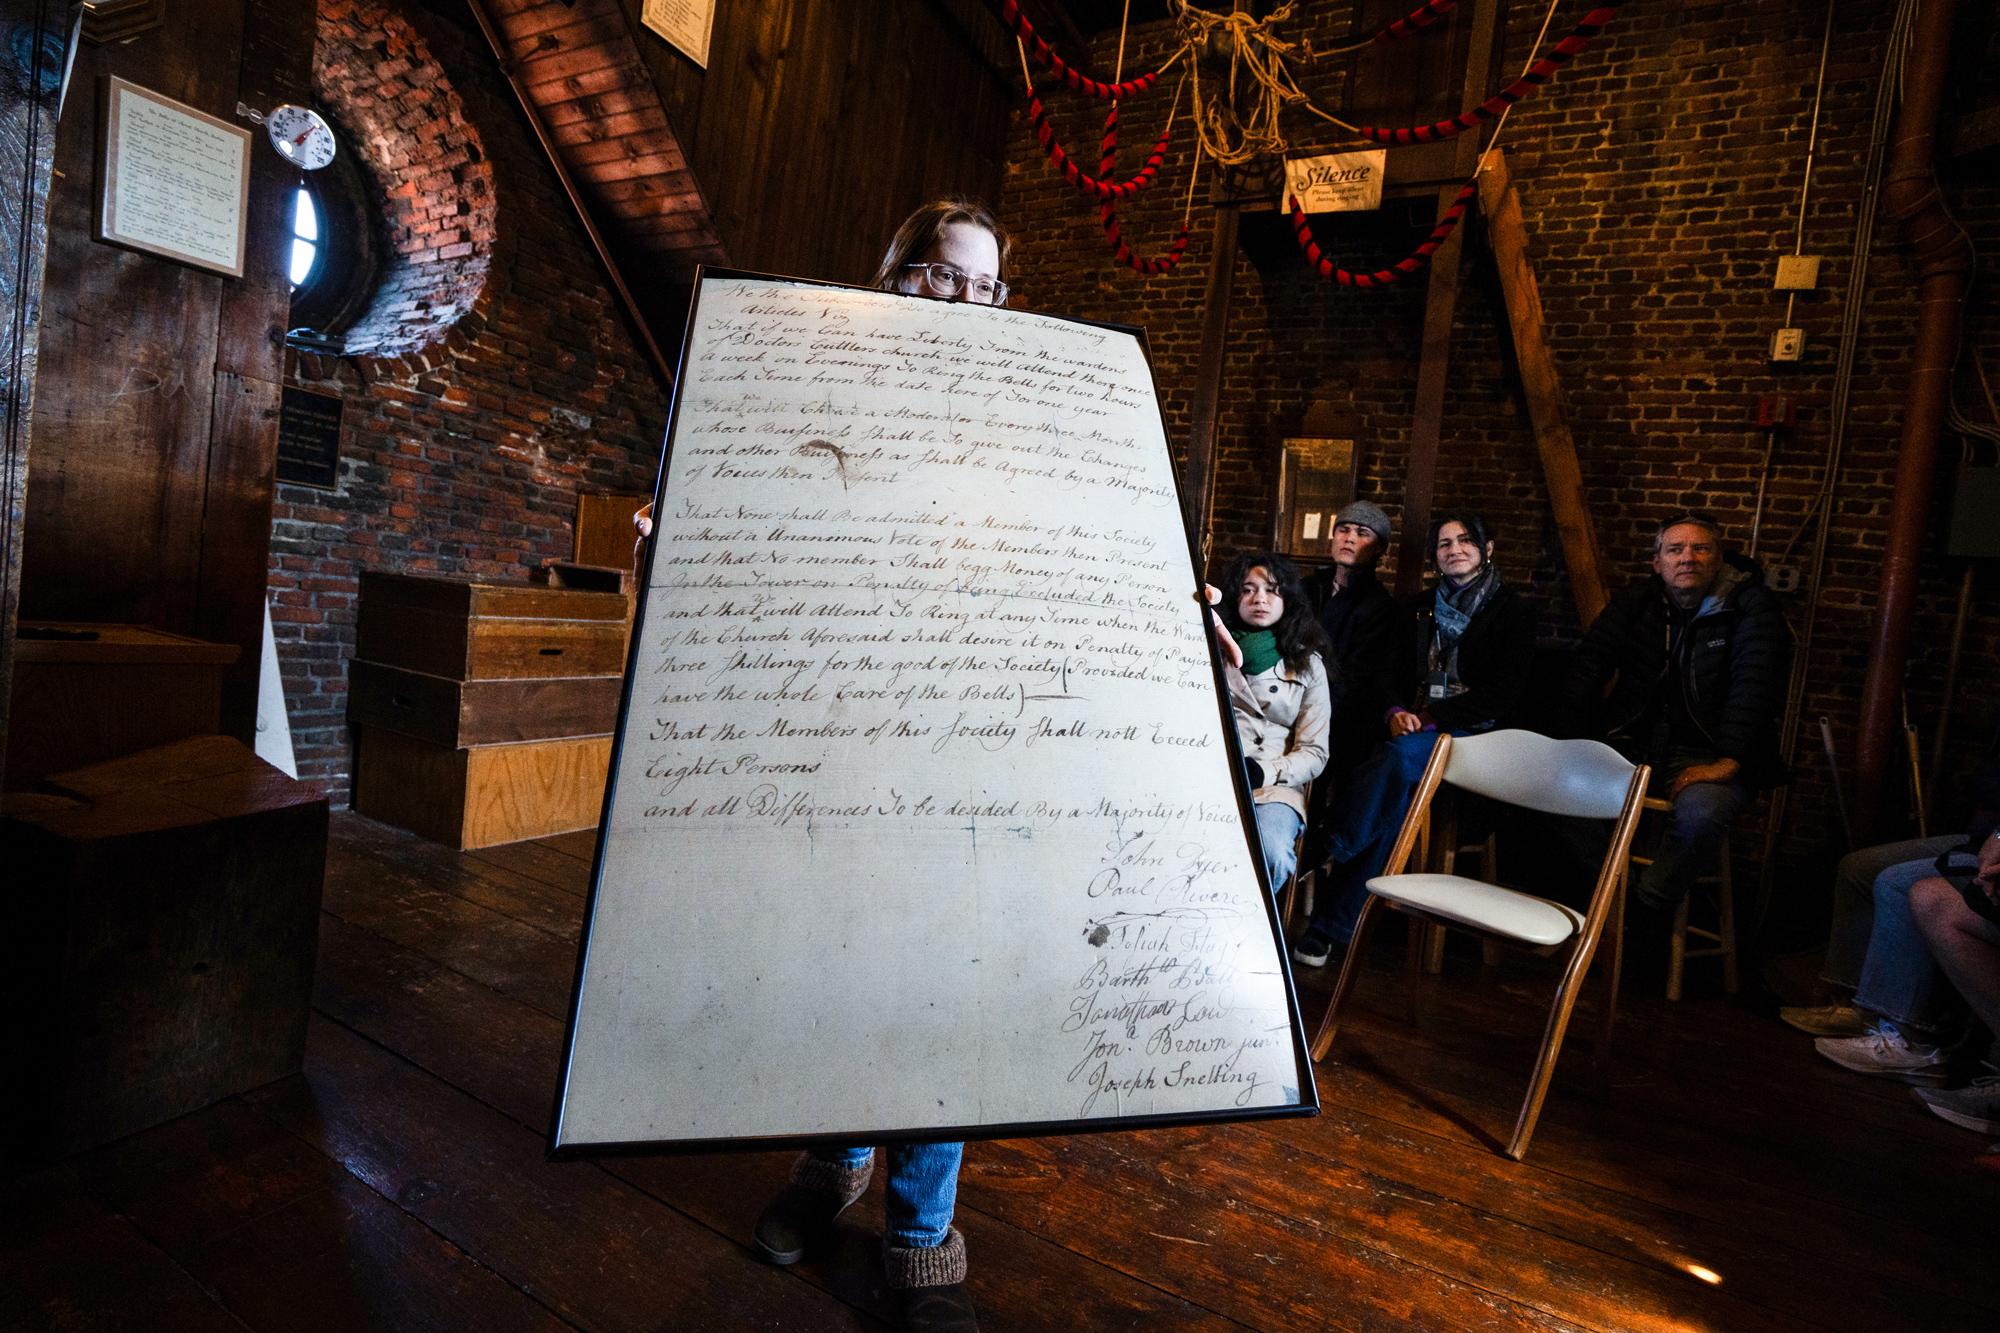 We the Subscribers Do agree To the Following
Articles Viz
That if we Can have Liberty From the wardens
of Doctors Cuttlers church we will attend there once
A week on Evenings To Ring the Bells for two hours
Each Time from the date here of For one year
That we will Chuse a Moderator Every three Months
whose Buissiness Shall be To give out the Changes
and other Buissiness as Shall be Agreed by a Majority
of Voices then Present
That None shall Be admitted a Member of this Society
without a Unanimous Vote of the Members then Present
and that No member Shall begg Money of any Person
In the Tower on Penalty of being Excluded the Society
and that We will Attend To Ring at any Time when the Ward
of the Church Aforesaid shall desire it on Penalty of Payin
three Shillings for the good of the Society (Provided we Can
have the whole Care of the Bells)
That the Members of this Society Shall nott Exceed
Eight Persons
and all Differences To be desided By a Majority of Voices
John Dyer
Paul Revere
Josiah Flagg
Barth^w Ball
Jonathan Law
Jon^a. Brown jun^r.
Joseph Snelling
Silence
Please keep silent
during ringing